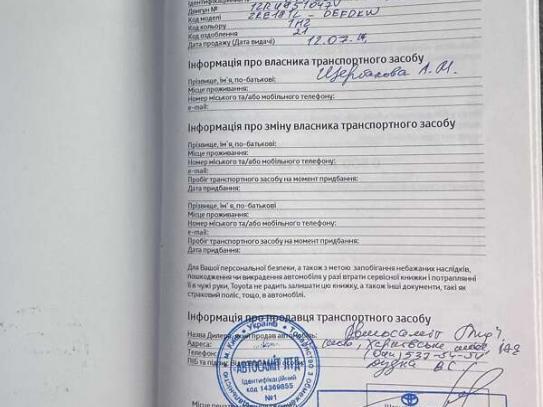 Двигун №
Код моделі ZRE181L - DEFDKW
Код кольору 1H2
Код оздоблення 21
Дата продажу (Дата видачі) 12.07.
Інформація про власника транспортного засобу
Прізвище, ім'я, по-батькові: Щербакова Л. М.
Місце проживання:
Номер міського та/або мобільного телефону:
e-mail:
Інформація про зміну власника транспортного засобу
Прізвище, ім'я, по-батькові:
Місце проживання:
Номер міського та/або мобільного телефону:
e-mail:
Пробіг транспортного засобу на момент придбання:
Дата придбання:
Прізвище, ім'я, по-батькові
Місце проживання:
Номер міського та/або мобільного телефону:
e-mail:
Пробіг транспортного засобу на момент придбання:
Дата придбання:
Для Вашої персональної безпеки, а також з метою запобігання небажаних наслідків,
пошкодження чи викрадення автомобіля у разі втрати сервісної книжки і потраплянні
її в чужі руки, Toyota не радить залишати цю книжку, а також інші документи, такі як
страховий поліс, тощо, в автомобілі.
Інформація про продавця транспортного засобу
Назва Дилера
Адреса: Харківське шосе
Телефон: (044) 537-54-54
м. Київ Україна
АВТОСАМІТ ЛТД
Ідентифікаційний
код 14369855
№1